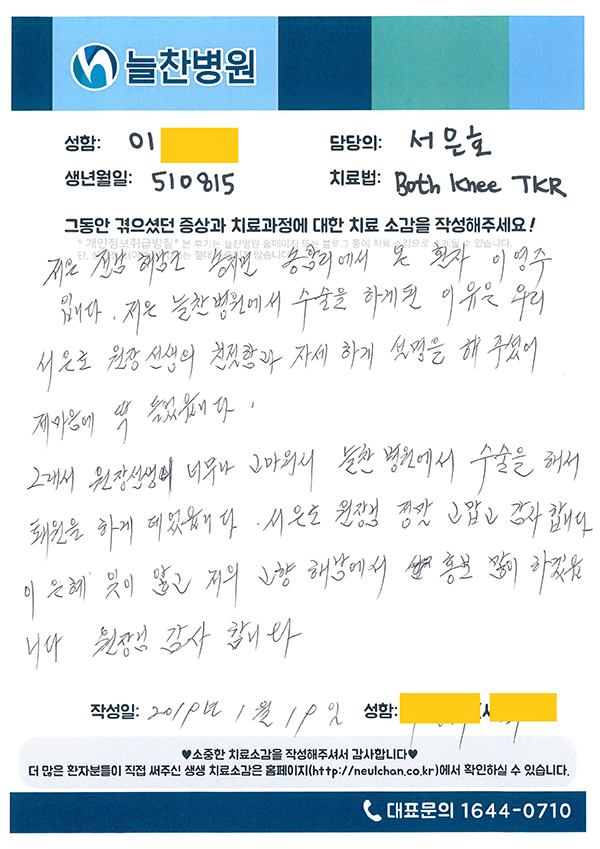 늘찬병원
성함: 이 담당의: 서은호
생년월일: 510815 치료법: Both Knee TKR
그동안 겪으셨던 증상과 치료과정에 대한 치료 소감을 작성해주세요!
* 개인정보취급방침* 본 후기는 늘찬병원 홈페이지 또는 블로그 등에 치료 소감으로 소개될 수 있습니다.
저는 전남 해남군 송지면 에서 온 환자 이영주
입니다. 저은 늘찬병원에서 수술을 하게된 이유은 우리
서은호 원장선생의 친절함과 자세 하게 설명을 해 주셨어
제마음에 딱 들었읍니다.
그래서 원장선생이 너무나 고마워서 늘찬 병원에서 수술을 해서
퇴원을 하게 데었읍니다. 서은호 원장님 정말 고맙고 감사 합니다
이 은혜 잊이 않고 저의 고향 해남에서 홍보 많이 하겠읍
니다 원장님 감사 합니다
작성일: 2019년 1월 19일 성함:
♥소중한 치료소감을 작성해주셔서 감사합니다♥
더 많은 환자분들이 직접 써주신 생생 치료소감은 홈페이지(http://neulchan.co.kr)에서 확인하실 수 있습니다.
대표문의 1644-0710